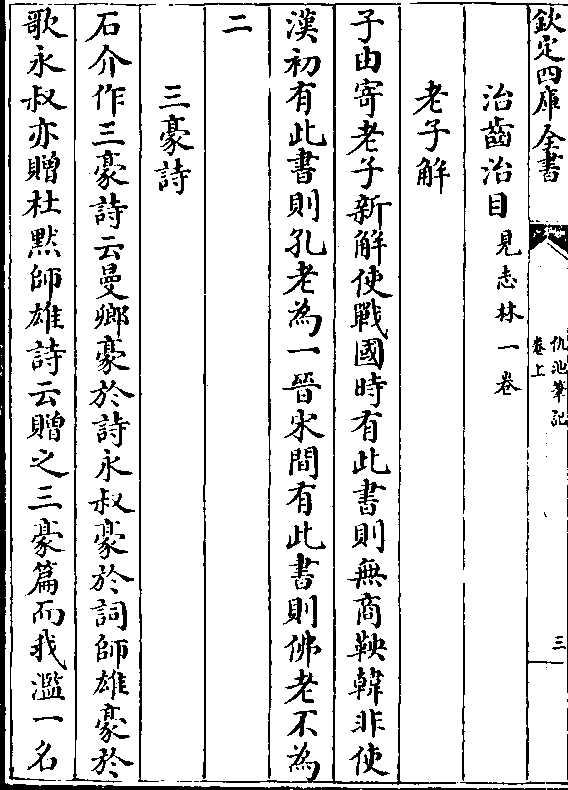 欽定四庫全書
仇池筆記
卷上
三
治齒治目見志林一卷
老子解
子由寄老子新解使戰國時有此書則無商鞅韓非使
漢初有此書則孔老為一晉宋間有此書則佛老不為
二
三豪詩
石介作三豪詩云曼卿豪於詩永叔豪於詞師雄豪於
歌永叔亦贈杜默師雄詩云贈之三豪篇而我濫一名